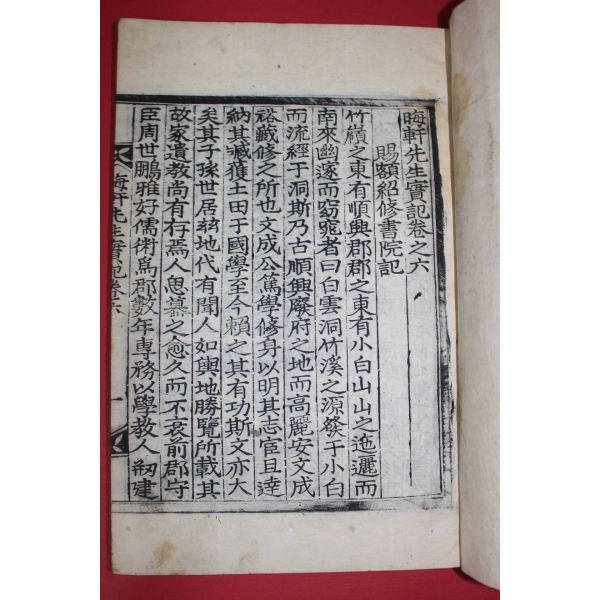 晦軒先生實記卷之六
賜額紹修書院記
竹嶺之東有順興郡郡之東有小白山山之迤邐而
南來幽邃而窈窕者曰白雲洞竹溪之源發于小白
而流經于洞斯乃古順興廢府之地而高麗安文成
裕藏修之所也文成公篤學修身以明其志官且達
納其臧獲土田于國學至今賴之其有功斯文亦大
矣其子孫世居玆地代有聞人如輿地勝覽所載其
故家遺教尚有存焉人思慕之愈久而不衰前郡守
臣周世鵬雅好儒術爲郡數年專務以學教人刱建
晦軒先生實記卷之六
一